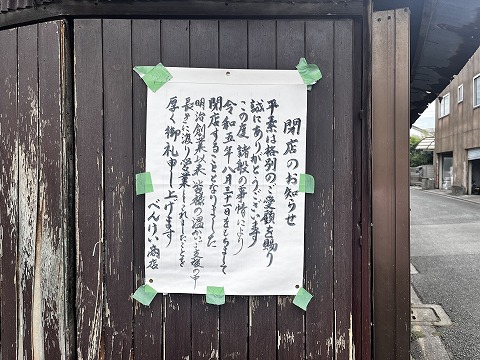 閉店のお知らせ
平素は格別のご愛顧を賜り
誠にありがとうございます
この度 諸般の事情により
令和五年八月三十一日をもちまして
閉店することとなりました
明治創業以来 皆様の温かいご支援の中
長きに渡り営業をしてこれましたことを
厚く御礼申し上げます
べんけい商店